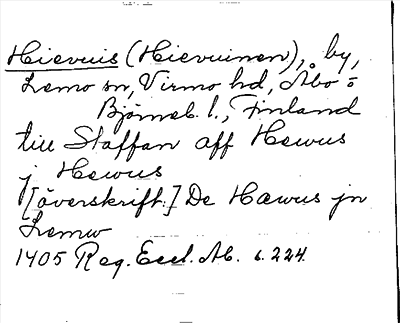 Hievuis (Hievuinen), by,
Lemo sn, Virmo hd, Åbo o
Björneb. l., Finland
till Staffan aff Hewus
j Hewus
[överskrift:] De Hæwus jn
Lemw
1405 Reg. Eccl. Ab. s. 224.